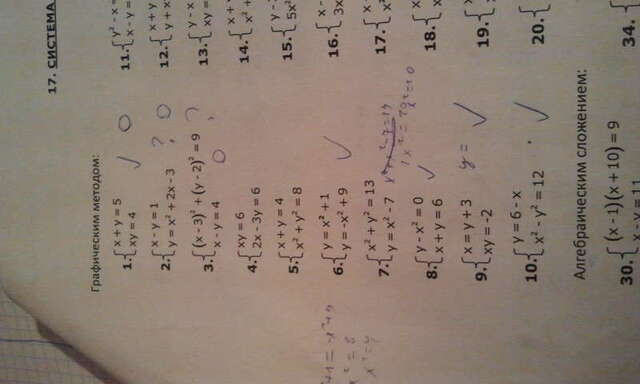 17. СИСТЕМА
Графическим методом:
1. { x + y = 5
xy = 4
2. { x - y = 1
y = x² + 2x - 3
3. { (x - 3)² + (y - 2)² = 9
x - y = 4
4. { xy = 6
2x - 3y = 6
5. { x + y = 4
x² + y² = 8
6. { y = x² + 1
y = -x² + 9
7. { x² + y² = 13
y = x² - 7
8. { y - x² = 0
x + y = 6
9. { x = y + 3
xy = -2
y =
10. { y = 6 - x
x² - y² = 12
11. { y² - x
x - y =
12. { x + y
y + x
13. { y - x
xy =
14. { x +
x² +
15. { y -
5x²
16. { x -
3x
17. { x -
x²
18. { x
x
19. { x
20. {
Алгебраическим сложением:
30. { (x - 1)(x + 10) = 9
34. {